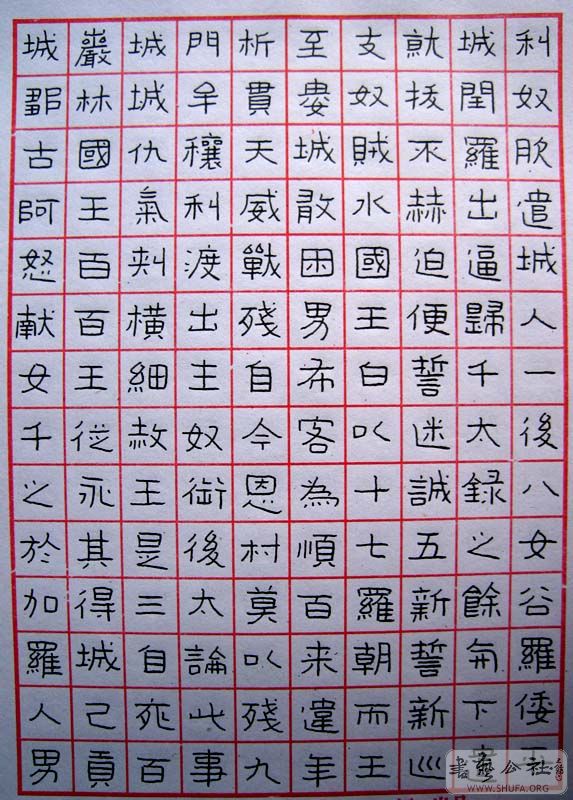 利奴肷遣城人一後八女谷羅倭
城閏羅出逼歸千太錄之餘下
就拔不赫迫便誓迷誠五新誓新巡
支奴賊水國王白以十七羅朝而王
至婁城敢困男布客為順百来違年
析貫天威戰殘自今恩村莫以殘九
門牟穰利渡出主奴衒後太論此事
城城仇氣刾橫細赦王是三自死百
巖林國王百百王從永其得城己貢
城鄒古阿怒献女千之於加羅人男
書藝公社
WWW.SHUFA.ORG